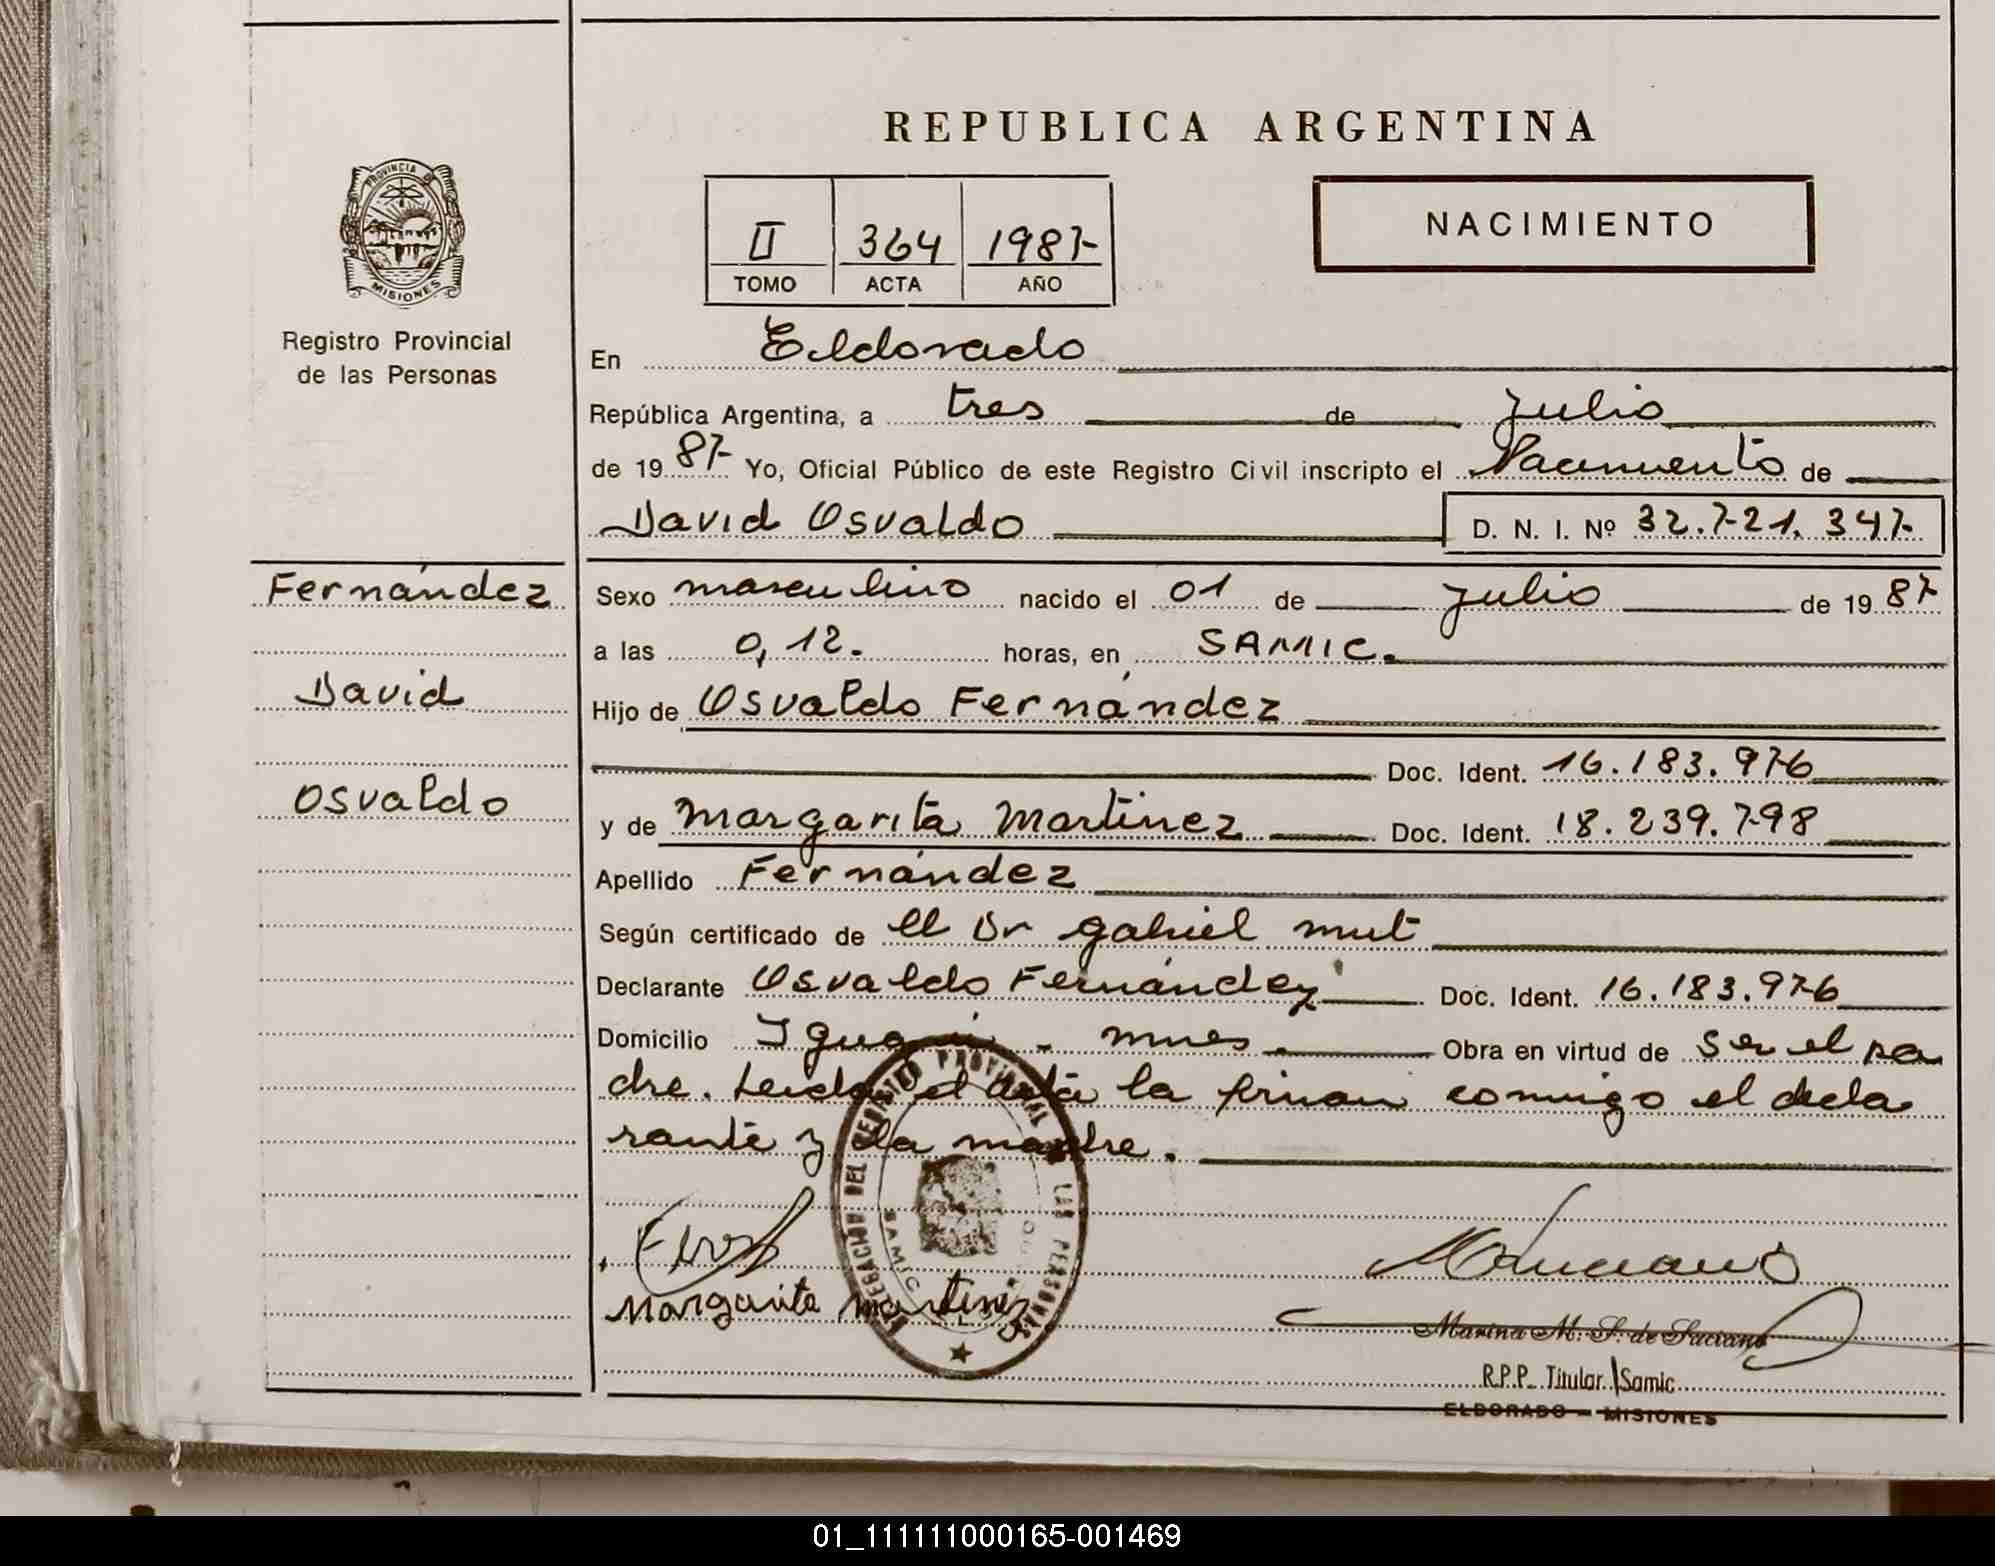 REPUBLICA ARGENTINA
PROVINCIA DE
MISIONES
Registro Provincial
de las Personas
II 364 1987
TOMO ACTA AÑO
NACIMIENTO
En Eldorado
República Argentina, a tres de Julio
de 1987 Yo, Oficial Público de este Registro Civil inscripto el Nacimiento de
David Osvaldo D. N. I. Nº 32.721.347
Fernández
David
Osvaldo
Sexo masculino nacido el 01 de Julio de 1987
a las 0,12. horas, en SAMIC.
Hijo de Osvaldo Fernández
Doc. Ident. 16.183.976
y de Margarita Martinez Doc. Ident. 18.239.798
Apellido Fernández
Según certificado de el Dr Gabriel Mut
Declarante Osvaldo Fernández Doc. Ident. 16.183.976
Domicilio Mnes. Obra en virtud de Ser el pa
dre. Leida el acta la firman conmigo el decla
rante y la madre.
DELEGACION DEL REGISTRO PROVINCIAL DE LAS PERSONAS
SAMIC
Margarita Martinez
Marina M. S. de Luciano
R.P.P. Titular Samic
ELDORADO - MISIONES
01_111111000165-001469